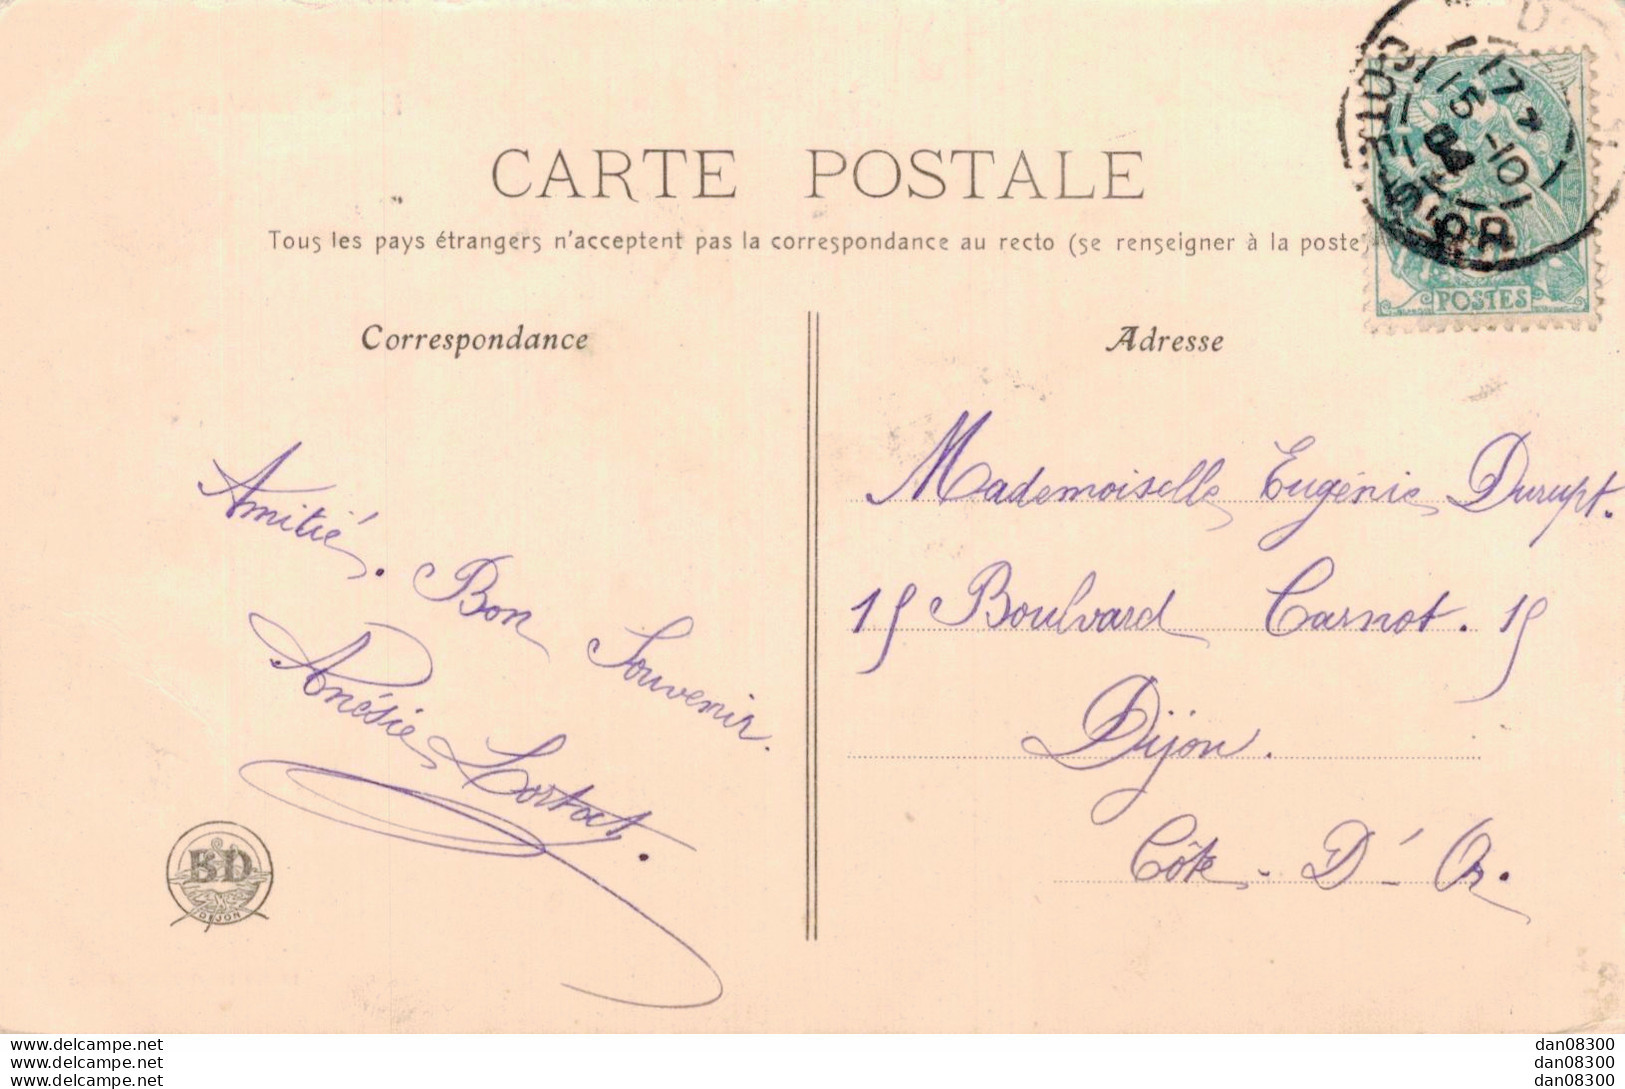 CARTE POSTALE
Tous les pays étrangers n'acceptent pas la correspondance au recto (se renseigner à la poste)
Correspondance
Adresse
POSTES
CÔTE-D'OR
17 10
15-10
04
Amitié. Bon Souvenir.
Anésie
BD
DIJON
Mademoiselle Eugénie Durupt.
15 Boulvard Carnot. 15
Dijon.
Côte-D'-Or.
www.delcampe.net
www.delcampe.net
www.delcampe.net
dan08300
dan08300
dan08300